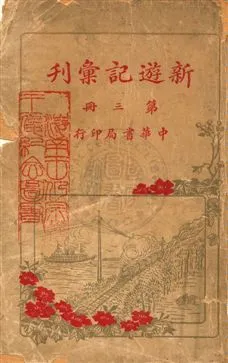 新遊記彙刊
第三冊
中華書局印行